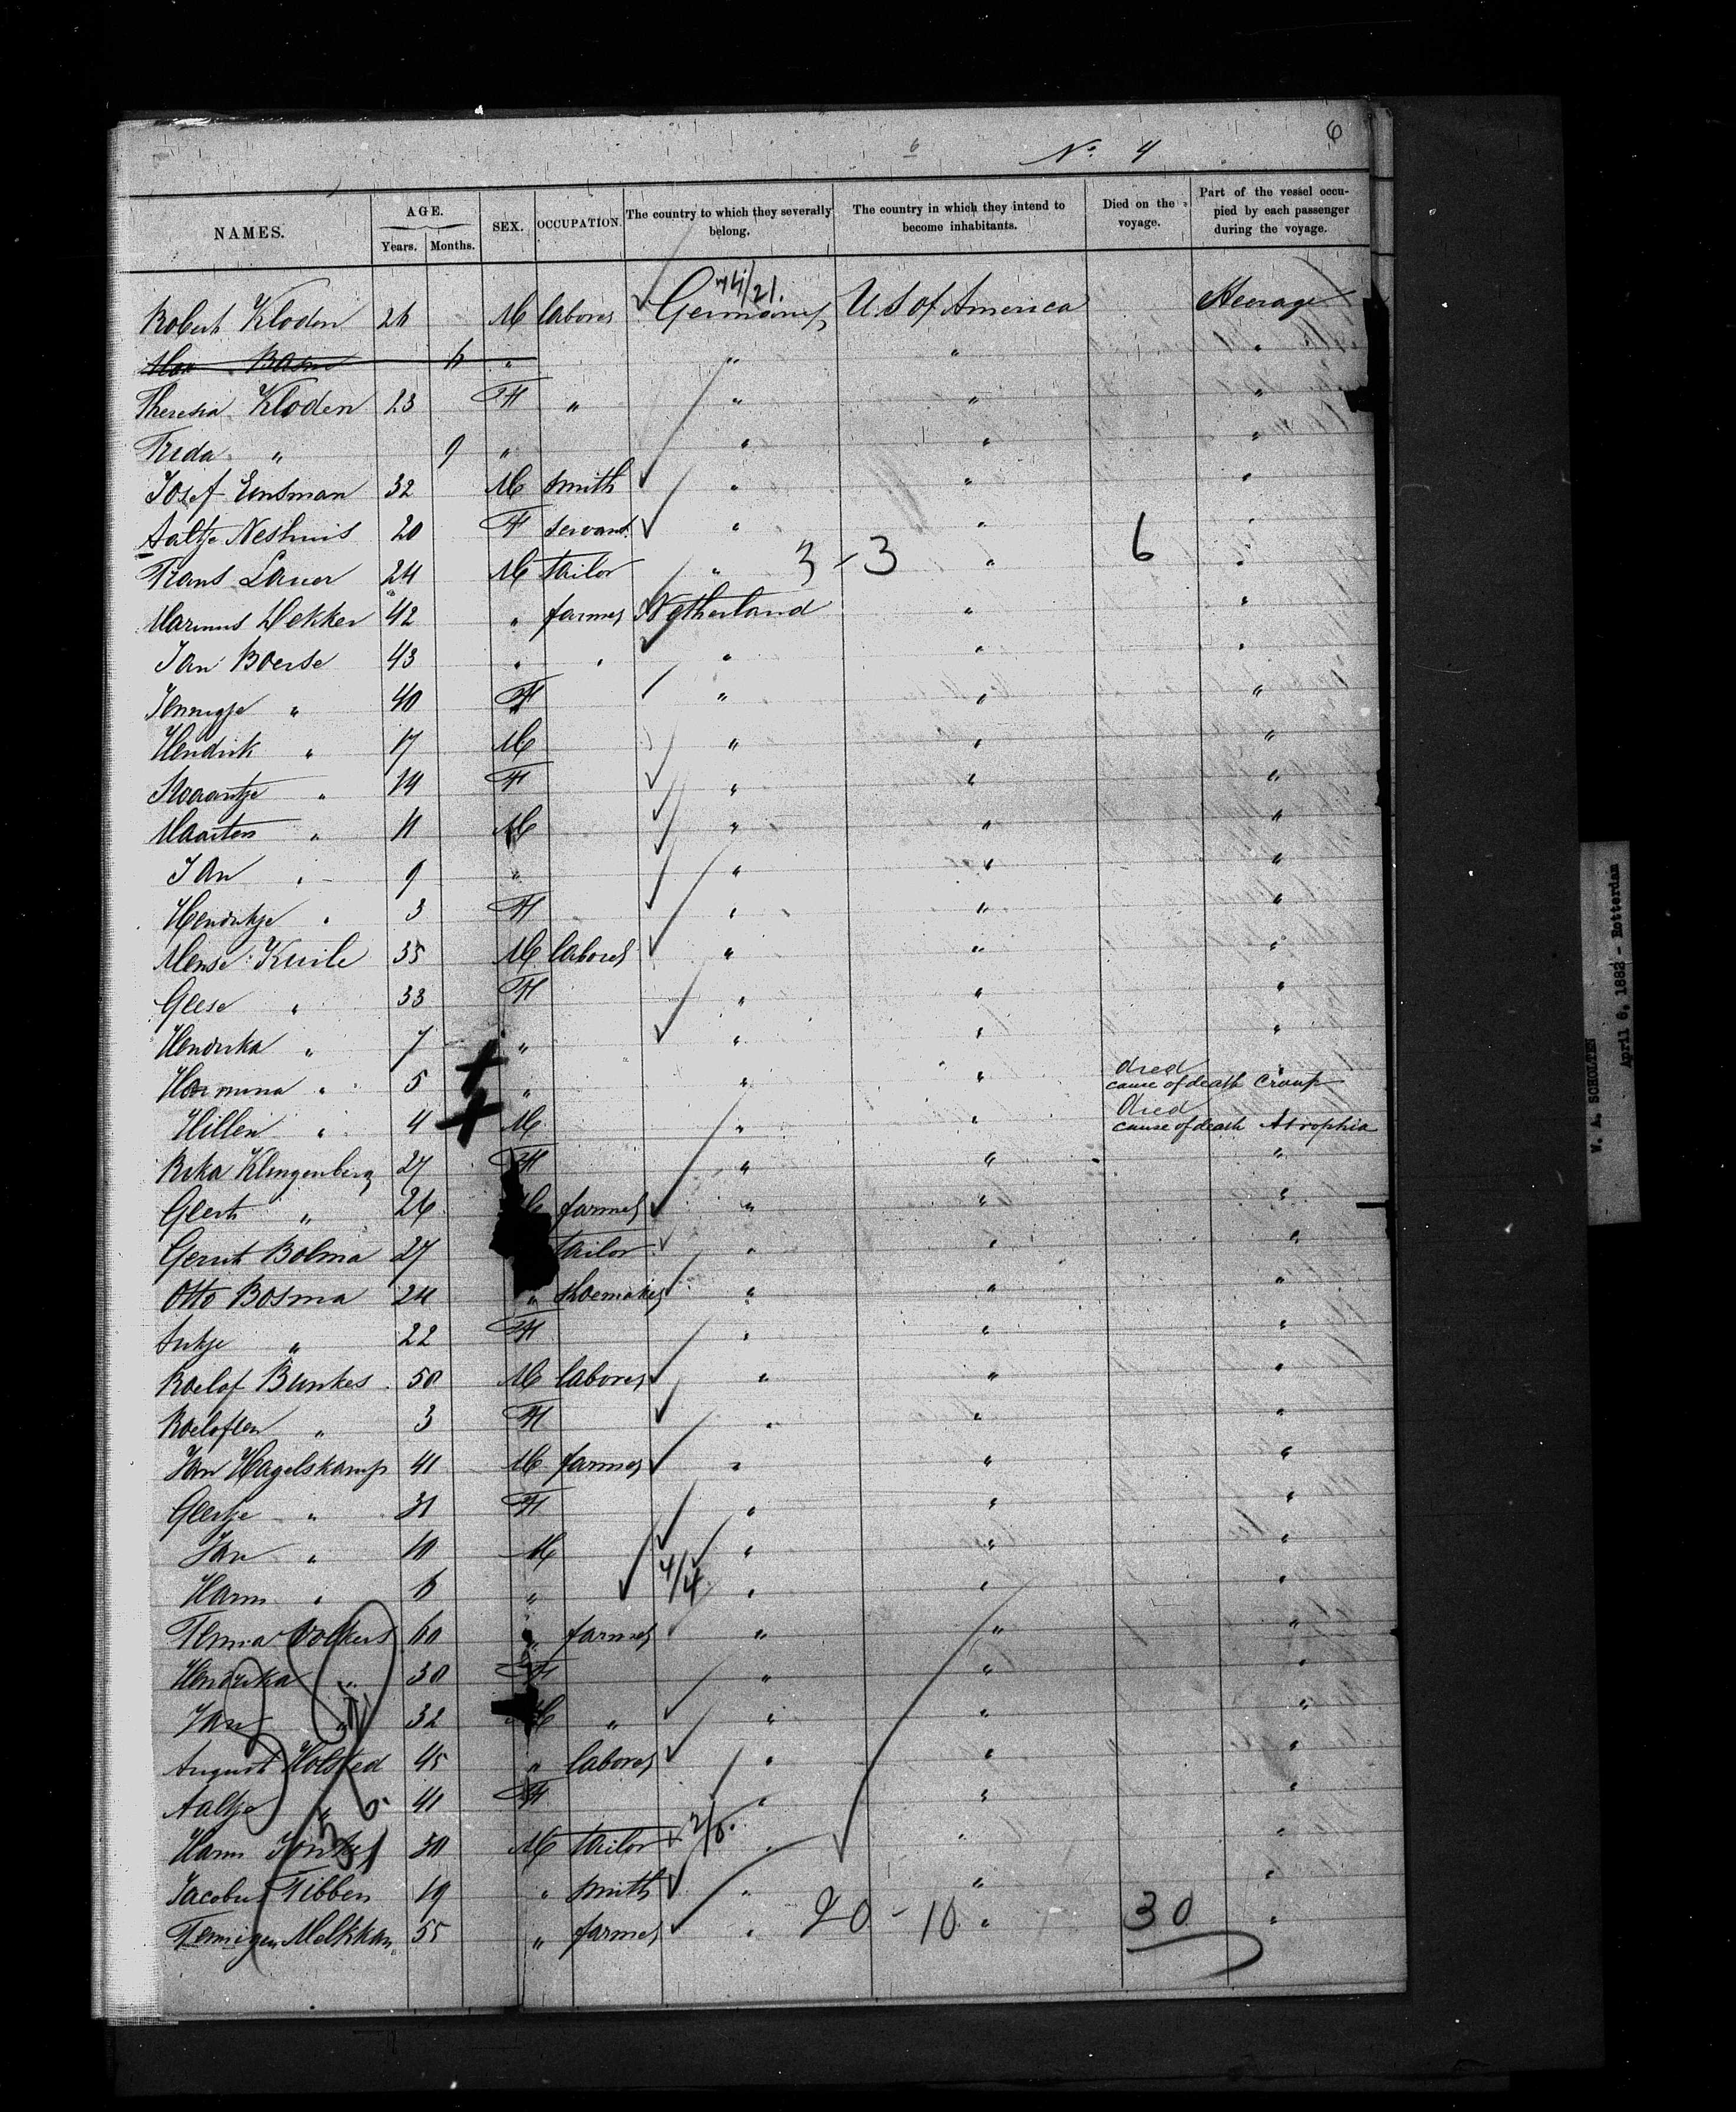 6
6
No. 4
NAMES. AGE. Years. Months. SEX. OCCUPATION. The country to which they severally belong. The country in which they intend to become inhabitants. Died on the voyage. Part of the vessel occupied by each passenger during the voyage.
Robert Kloden 26 M labores Germany U.S of America Steerage
6 " " " "
Theresia Kloden 23 F " " " "
Frida " 9 " " " "
Josef Einsman 32 M smith " " "
Aaltje Neshuis 20 F servant " " "
Frans Lauer 24 M tailor " 3 - 3 " 6 "
Marinus Dekker 42 " farmer Netherland " "
Jan Boerse 43 " " " " "
Jennigje " 40 F " " "
Hendrik " 17 M " " "
" 14 F " " "
Maarten " 11 M " " "
Jan " 9 " " " "
Hendrikje " 3 F " " "
Mense Kuile 35 M labores " " "
Geese " 33 F " " "
Hendrika " 7 " " " "
Harmina " 5 " " " died cause of death Croup
Hillen " 4 M " " Died cause of death Atrophia
Rika Klingenberg 27 F " " "
Geert " 26 M farmer " " "
Gerrit Bolma 27 tailor " " "
Otto Bosma 24 " shoemaker " " "
Antje " 22 F " " "
Roelof Bunkes 50 M labores " " "
Roeloften " 3 F " " "
Jan Hagelskamp 41 M farmer " " "
Geertje " 31 F " " "
Jan " 10 M " " "
Harm " 6 " 4/4 " " "
Volkers 60 " farmer " " "
Hendrika " 30 F " " "
Jan " 32 M " " " "
August Holsted 45 " labores " " "
Aaltje " 41 F " " "
Harm Jonker 30 M tailor 2/6. " " "
Jacobus Tibben 19 " smith " " "
55 " farmer " 20 - 10 " 30 "
W. A. SCHOLTEN
April 6, 1882 - Rotterdam